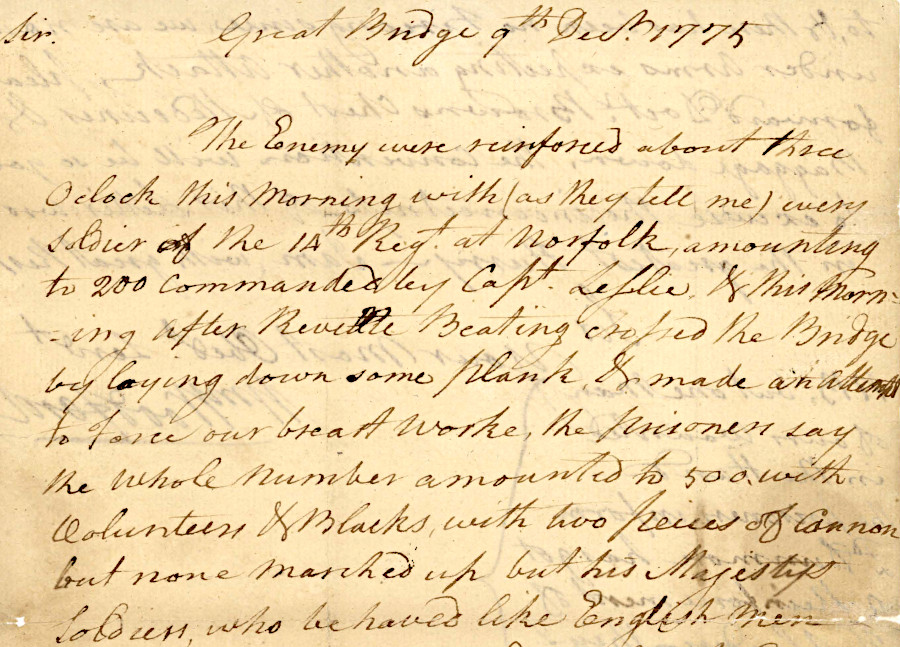 Sir. Great Bridge 9th Decr. 1775
The Enemy were reinforced about three
Oclock this Morning with (as they tell me) every
Soldier of the 14th Regt. at Norfolk, amounting
to 200 commanded by Capt. Leslie, & this Morn=
=ing after Reveille Beating crossed the Bridge
by laying down some plank, & made an attempt
to force our breast Works, the prisoners say
the whole number amounted to 500 with
Volunteers & Blacks, with two peices of Cannon
but none marched up but his Majestys
Soldiers, who behaved like English men